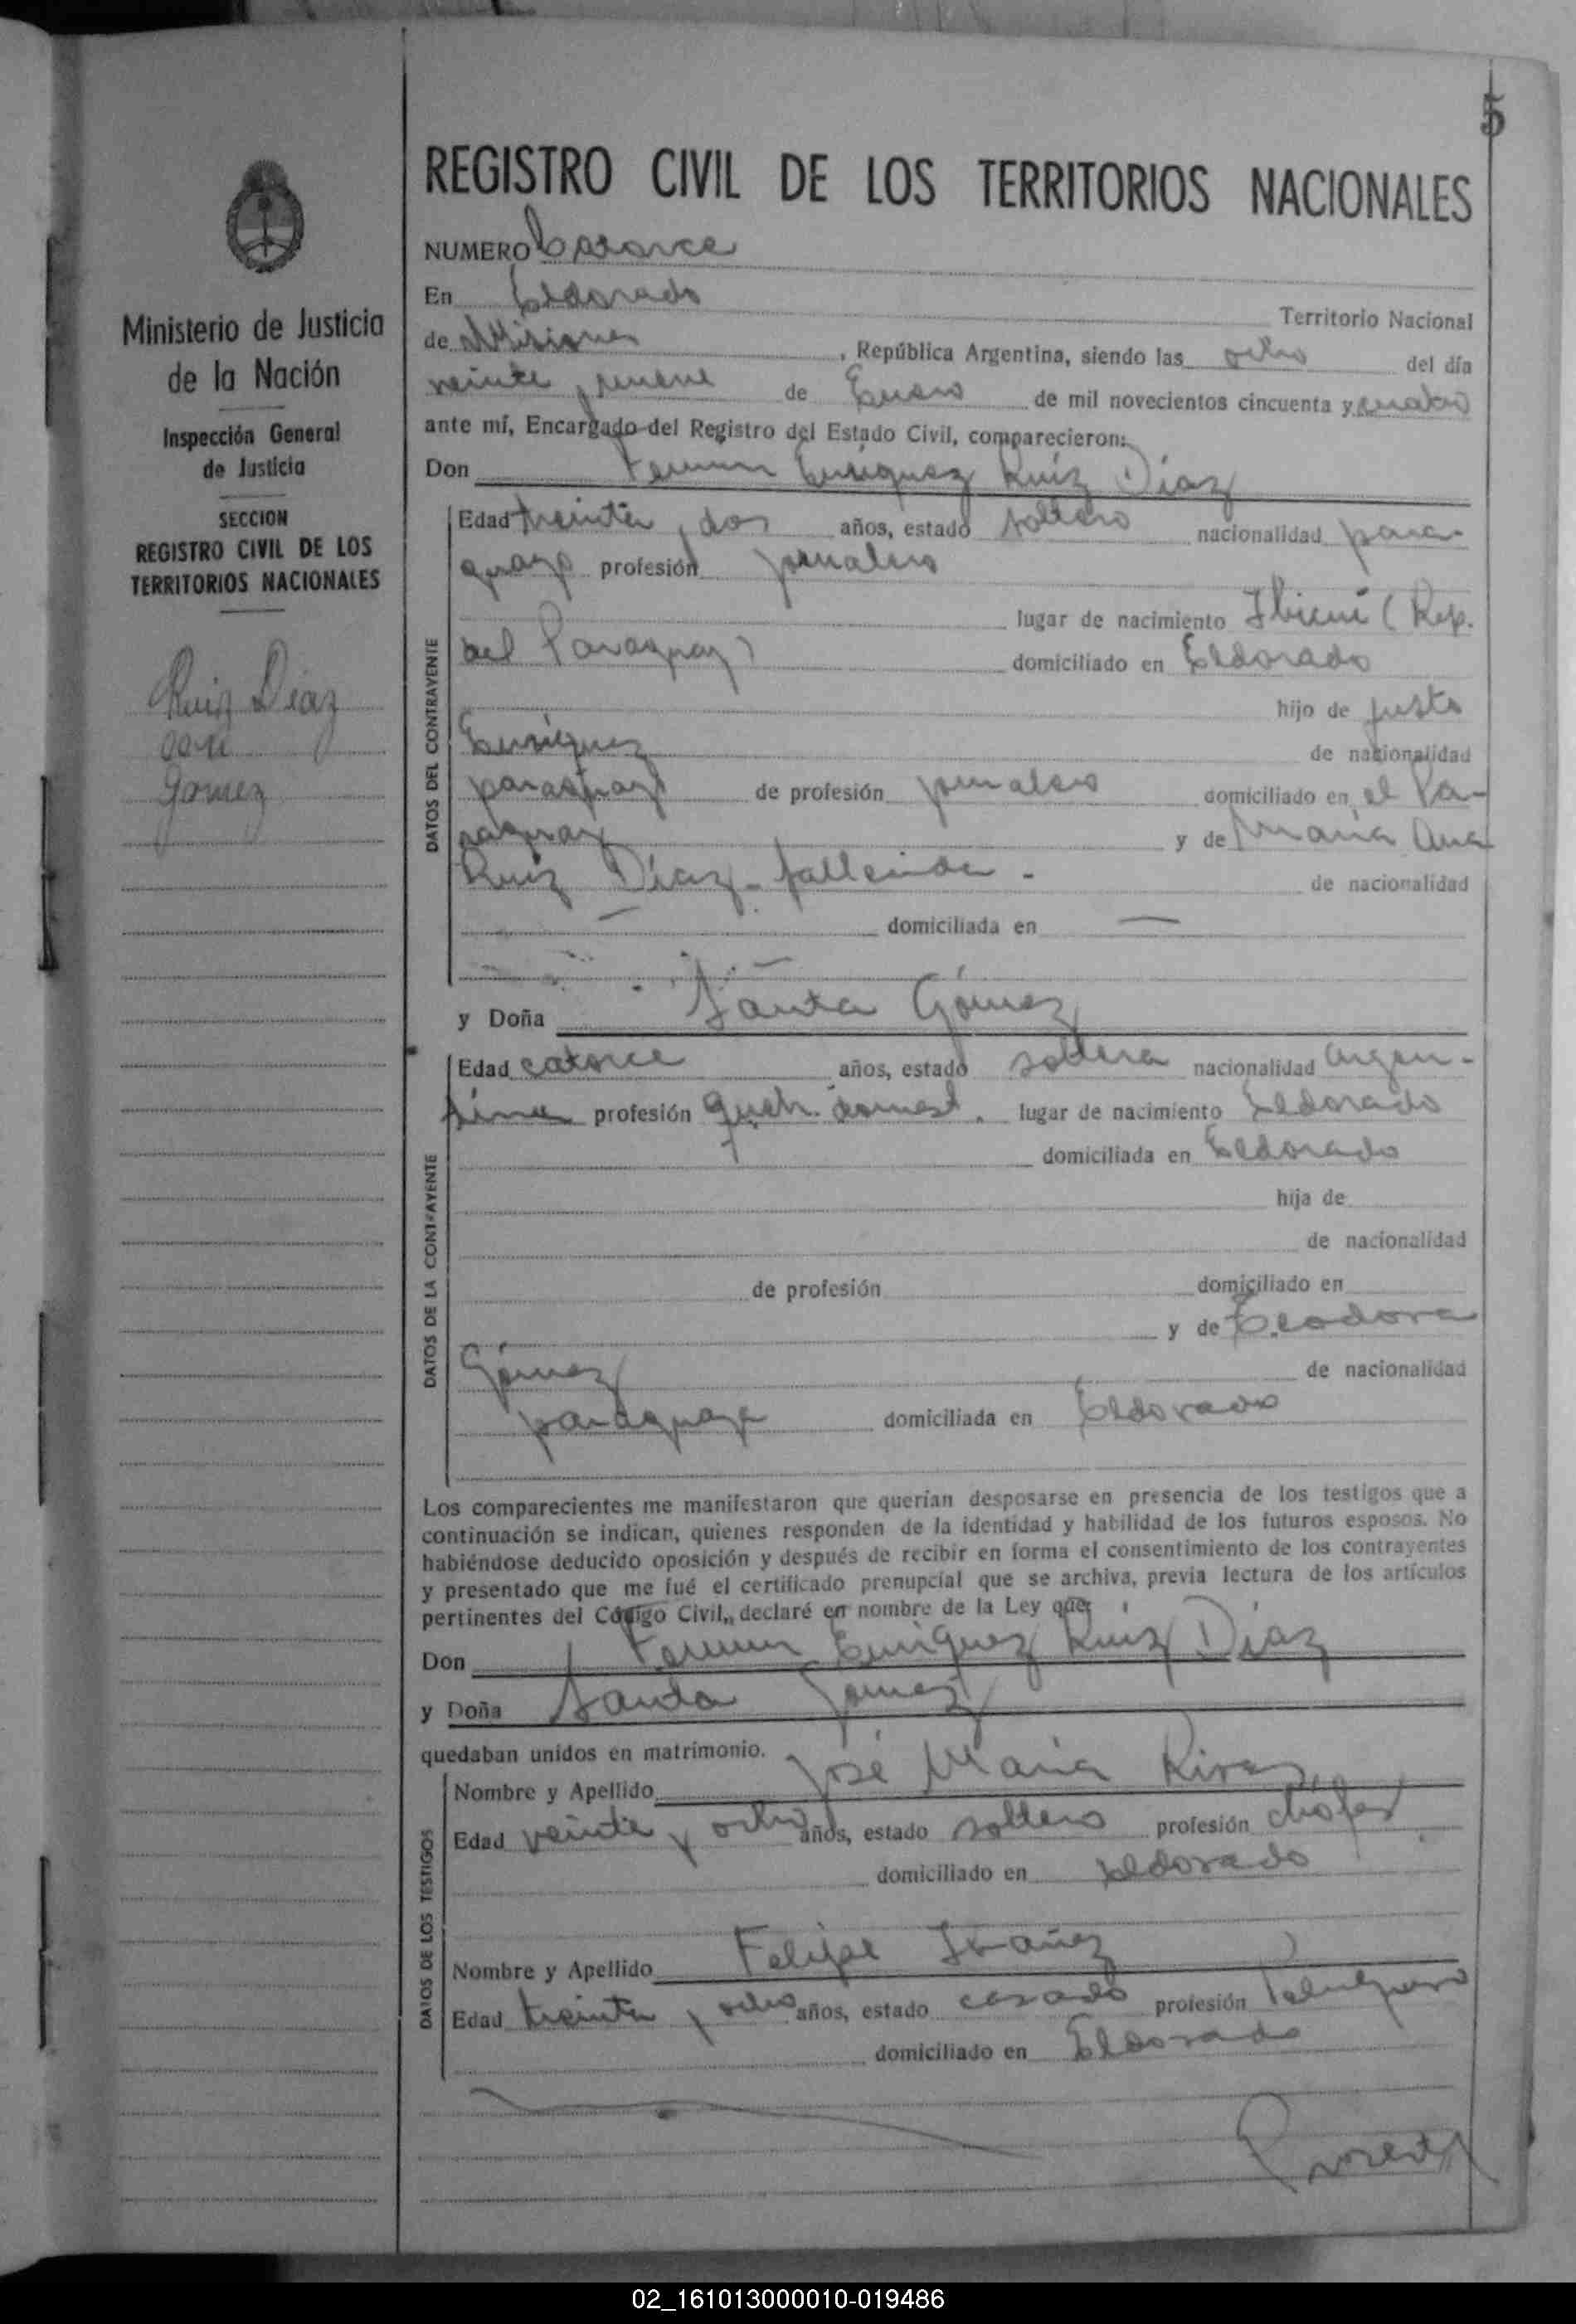 5
REGISTRO CIVIL DE LOS TERRITORIOS NACIONALES
Ministerio de Justicia
de la Nación
Inspección General
de Justicia
SECCION
REGISTRO CIVIL DE LOS
TERRITORIOS NACIONALES
Ruiz Diaz
con
Gomez
NUMERO Catorce
En Eldorado Territorio Nacional
de Misiones, República Argentina, siendo las ocho del día
veinte y nueve de Enero de mil novecientos cincuenta y cuatro
ante mí, Encargado del Registro del Estado Civil, comparecieron:
Don Fermin Enriquez Ruiz Díaz
DATOS DEL CONTRAYENTE
Edad treinta y dos años, estado soltero nacionalidad para-
guayo profesión jornalero
lugar de nacimiento Ibicuí (Rep.
del Paraguay) domiciliado en Eldorado
hijo de Justo
Enriquez de nacionalidad
paraguayo de profesión jornalero domiciliado en el Pa-
raguay y de María Ana
Ruiz Díaz - fallecida - de nacionalidad
— domiciliada en —
y Doña Santa Gómez
DATOS DE LA CONTRAYENTE
Edad catorce años, estado soltera nacionalidad argen-
tina profesión queh. domest. lugar de nacimiento Eldorado
domiciliada en Eldorado
hija de
de nacionalidad
de profesión domiciliado en
y de Teodora
Gómez de nacionalidad
paraguaya domiciliada en Eldorado
Los comparecientes me manifestaron que querían desposarse en presencia de los testigos que a
continuación se indican, quienes responden de la identidad y habilidad de los futuros esposos. No
habiéndose deducido oposición y después de recibir en forma el consentimiento de los contrayentes
y presentado que me fué el certificado prenupcial que se archiva, previa lectura de los artículos
pertinentes del Código Civil, declaré en nombre de la Ley que:
Don Fermin Enriquez Ruiz Díaz
y Doña Santa Gómez
quedaban unidos en matrimonio.
DATOS DE LOS TESTIGOS
Nombre y Apellido José María Rivas
Edad veinte y ocho años, estado soltero profesión chófer
domiciliado en Eldorado
Nombre y Apellido Felipe Ibañez
Edad treinta y ocho años, estado casado profesión Peluquero
domiciliado en Eldorado
02_161013000010-019486